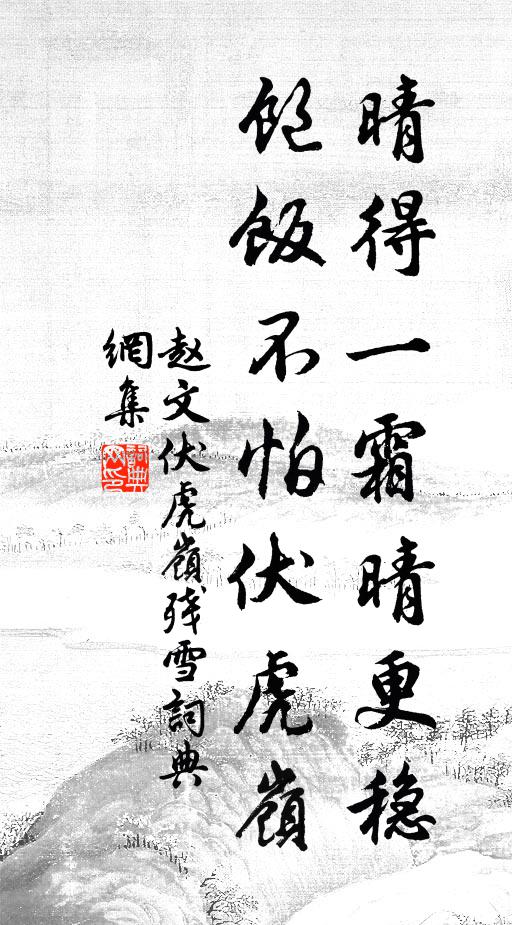 晴得一霜晴更稳
饱饭不怕伏虎嶺
赵文伏虎嶺残雪詞典
網集
詞典
网印